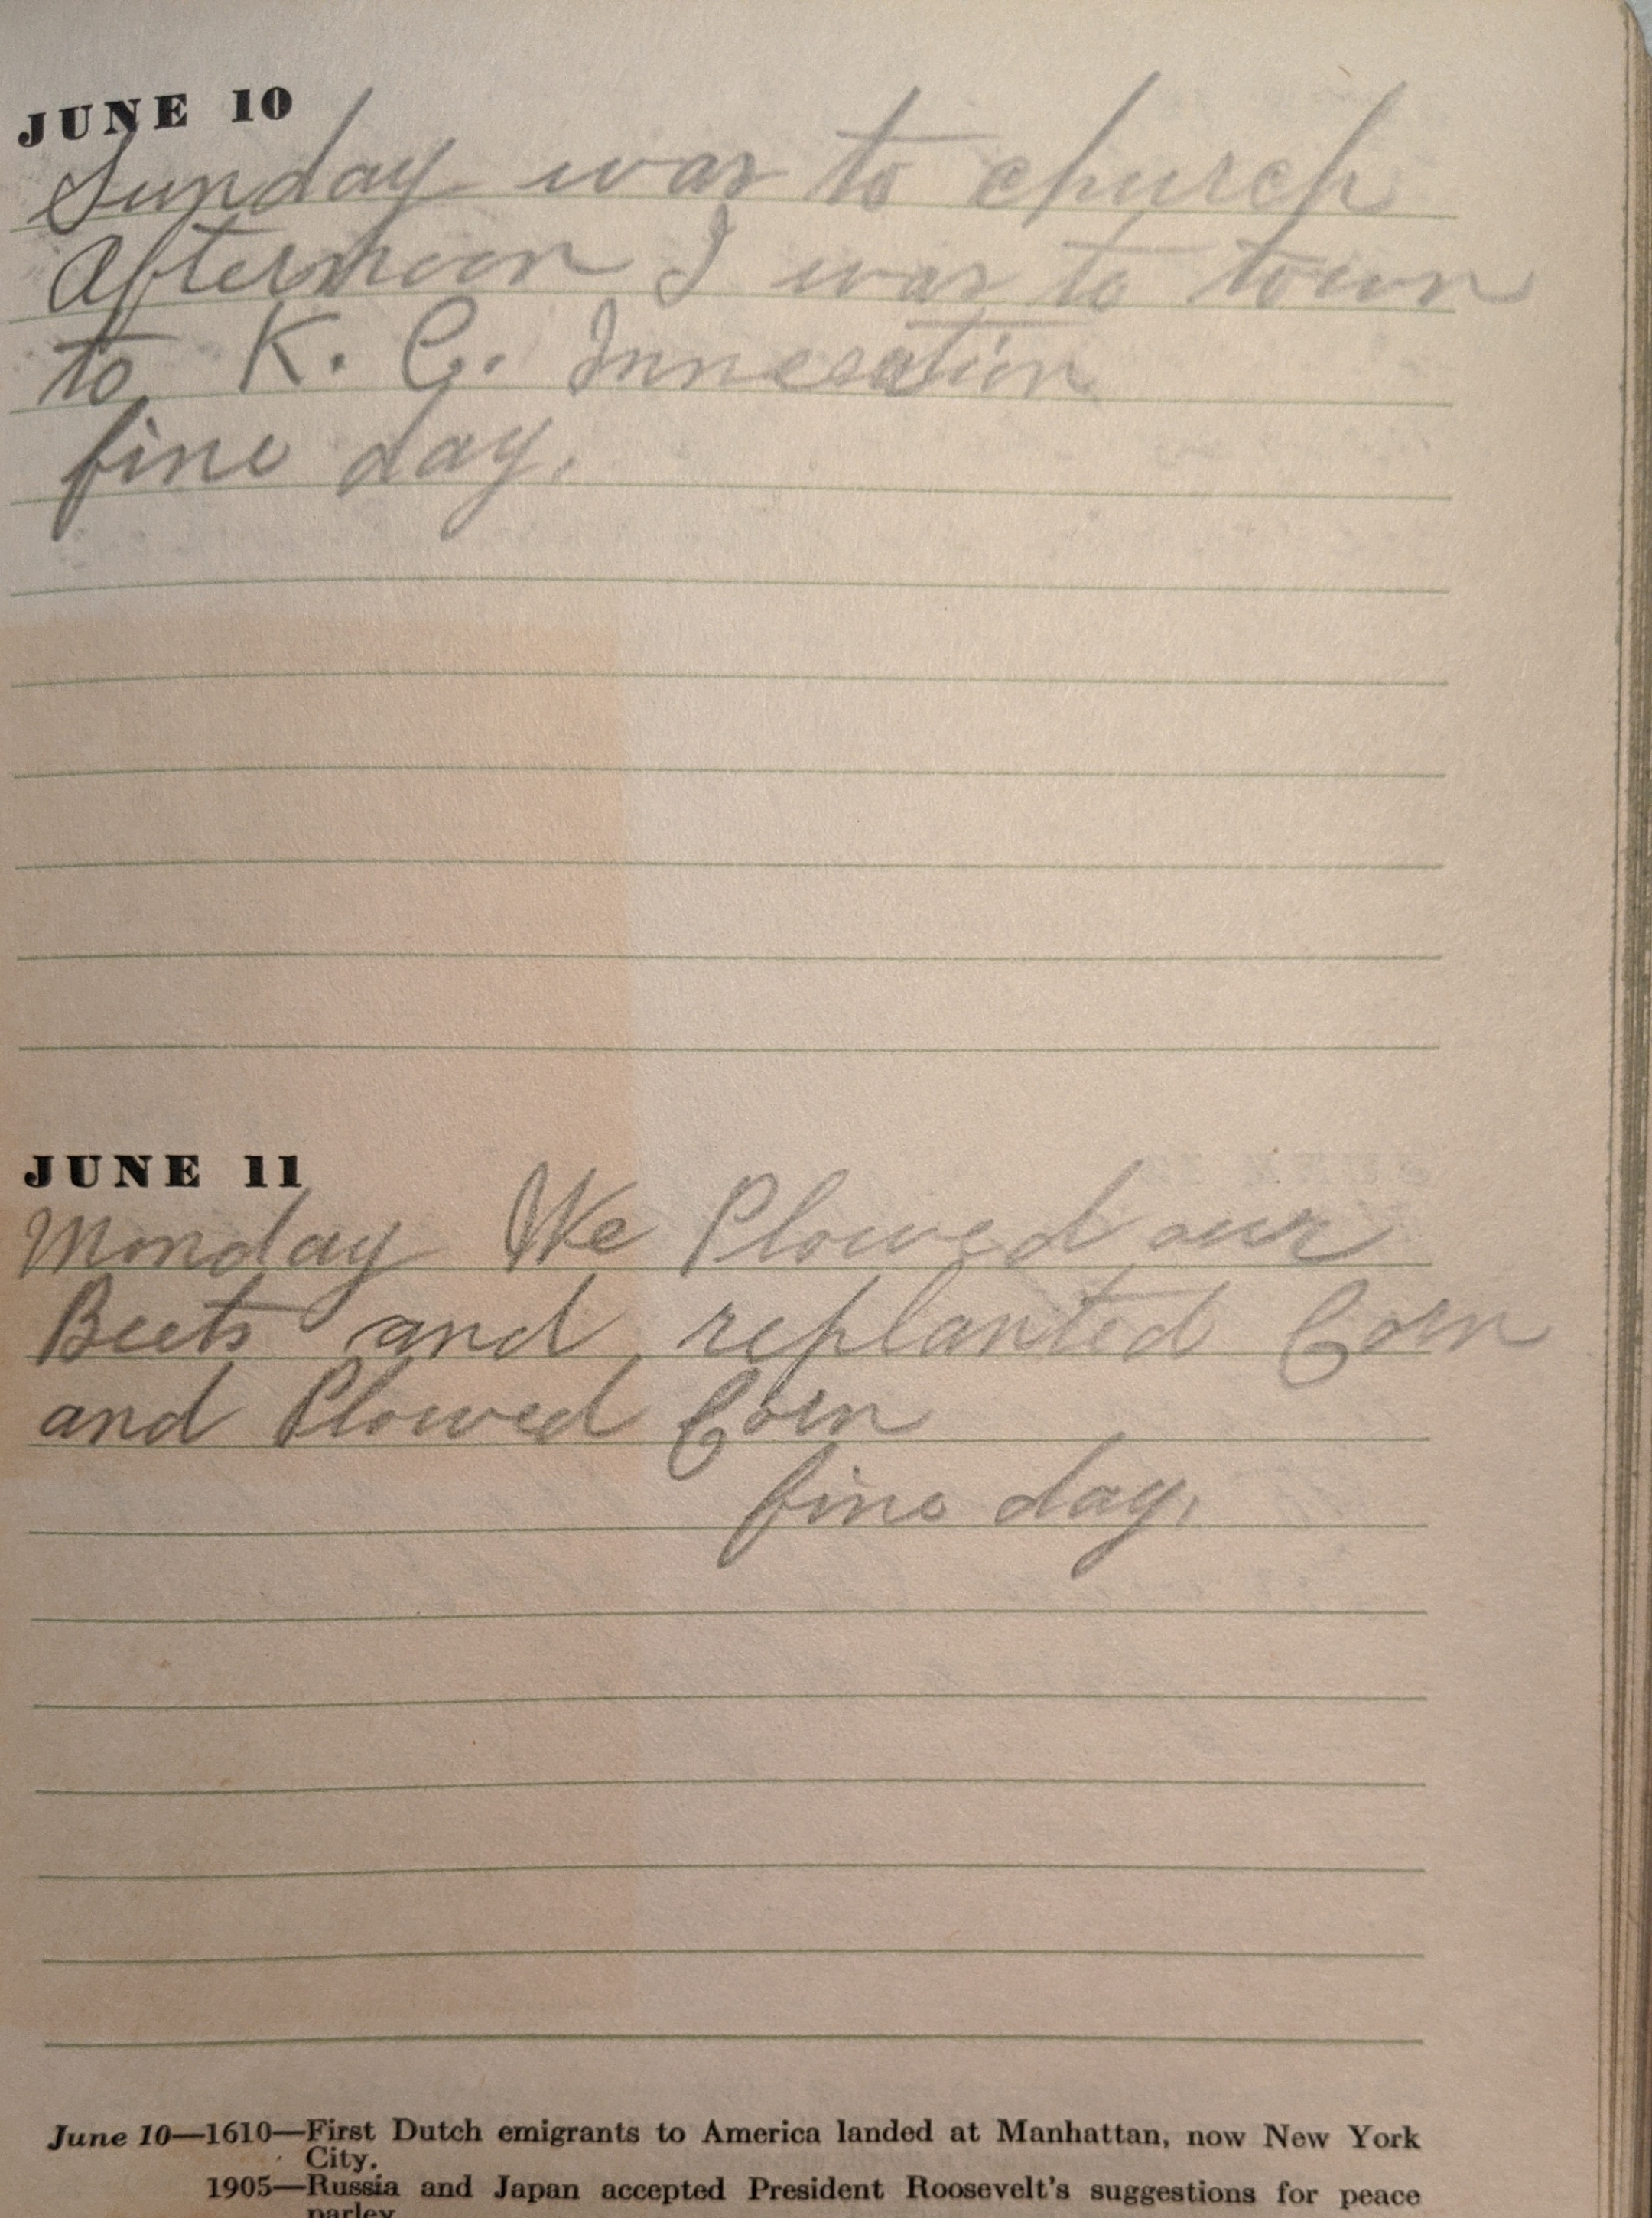 JUNE 10
Sunday was to church
Afternoon I was to town
to K. C. Inneration
fine day.
JUNE 11
Monday We Plowed our
Beets and replanted Corn
and Plowed Corn
fine day.
June 10—1610—First Dutch emigrants to America landed at Manhattan, now New York
City.
1905—Russia and Japan accepted President Roosevelt's suggestions for peace
parley.